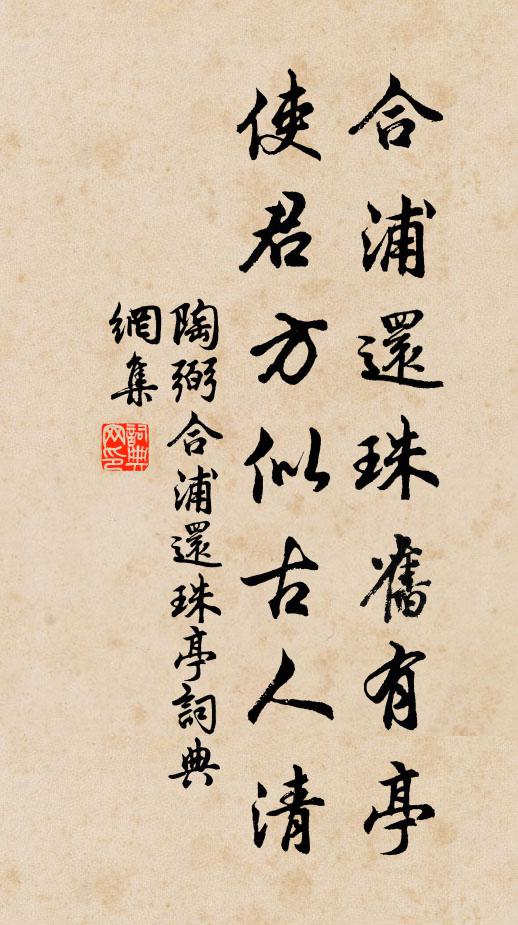 合浦還珠舊有亭
使君方似古人清
陶弼合浦還珠亭詞典
網集
詞典網印